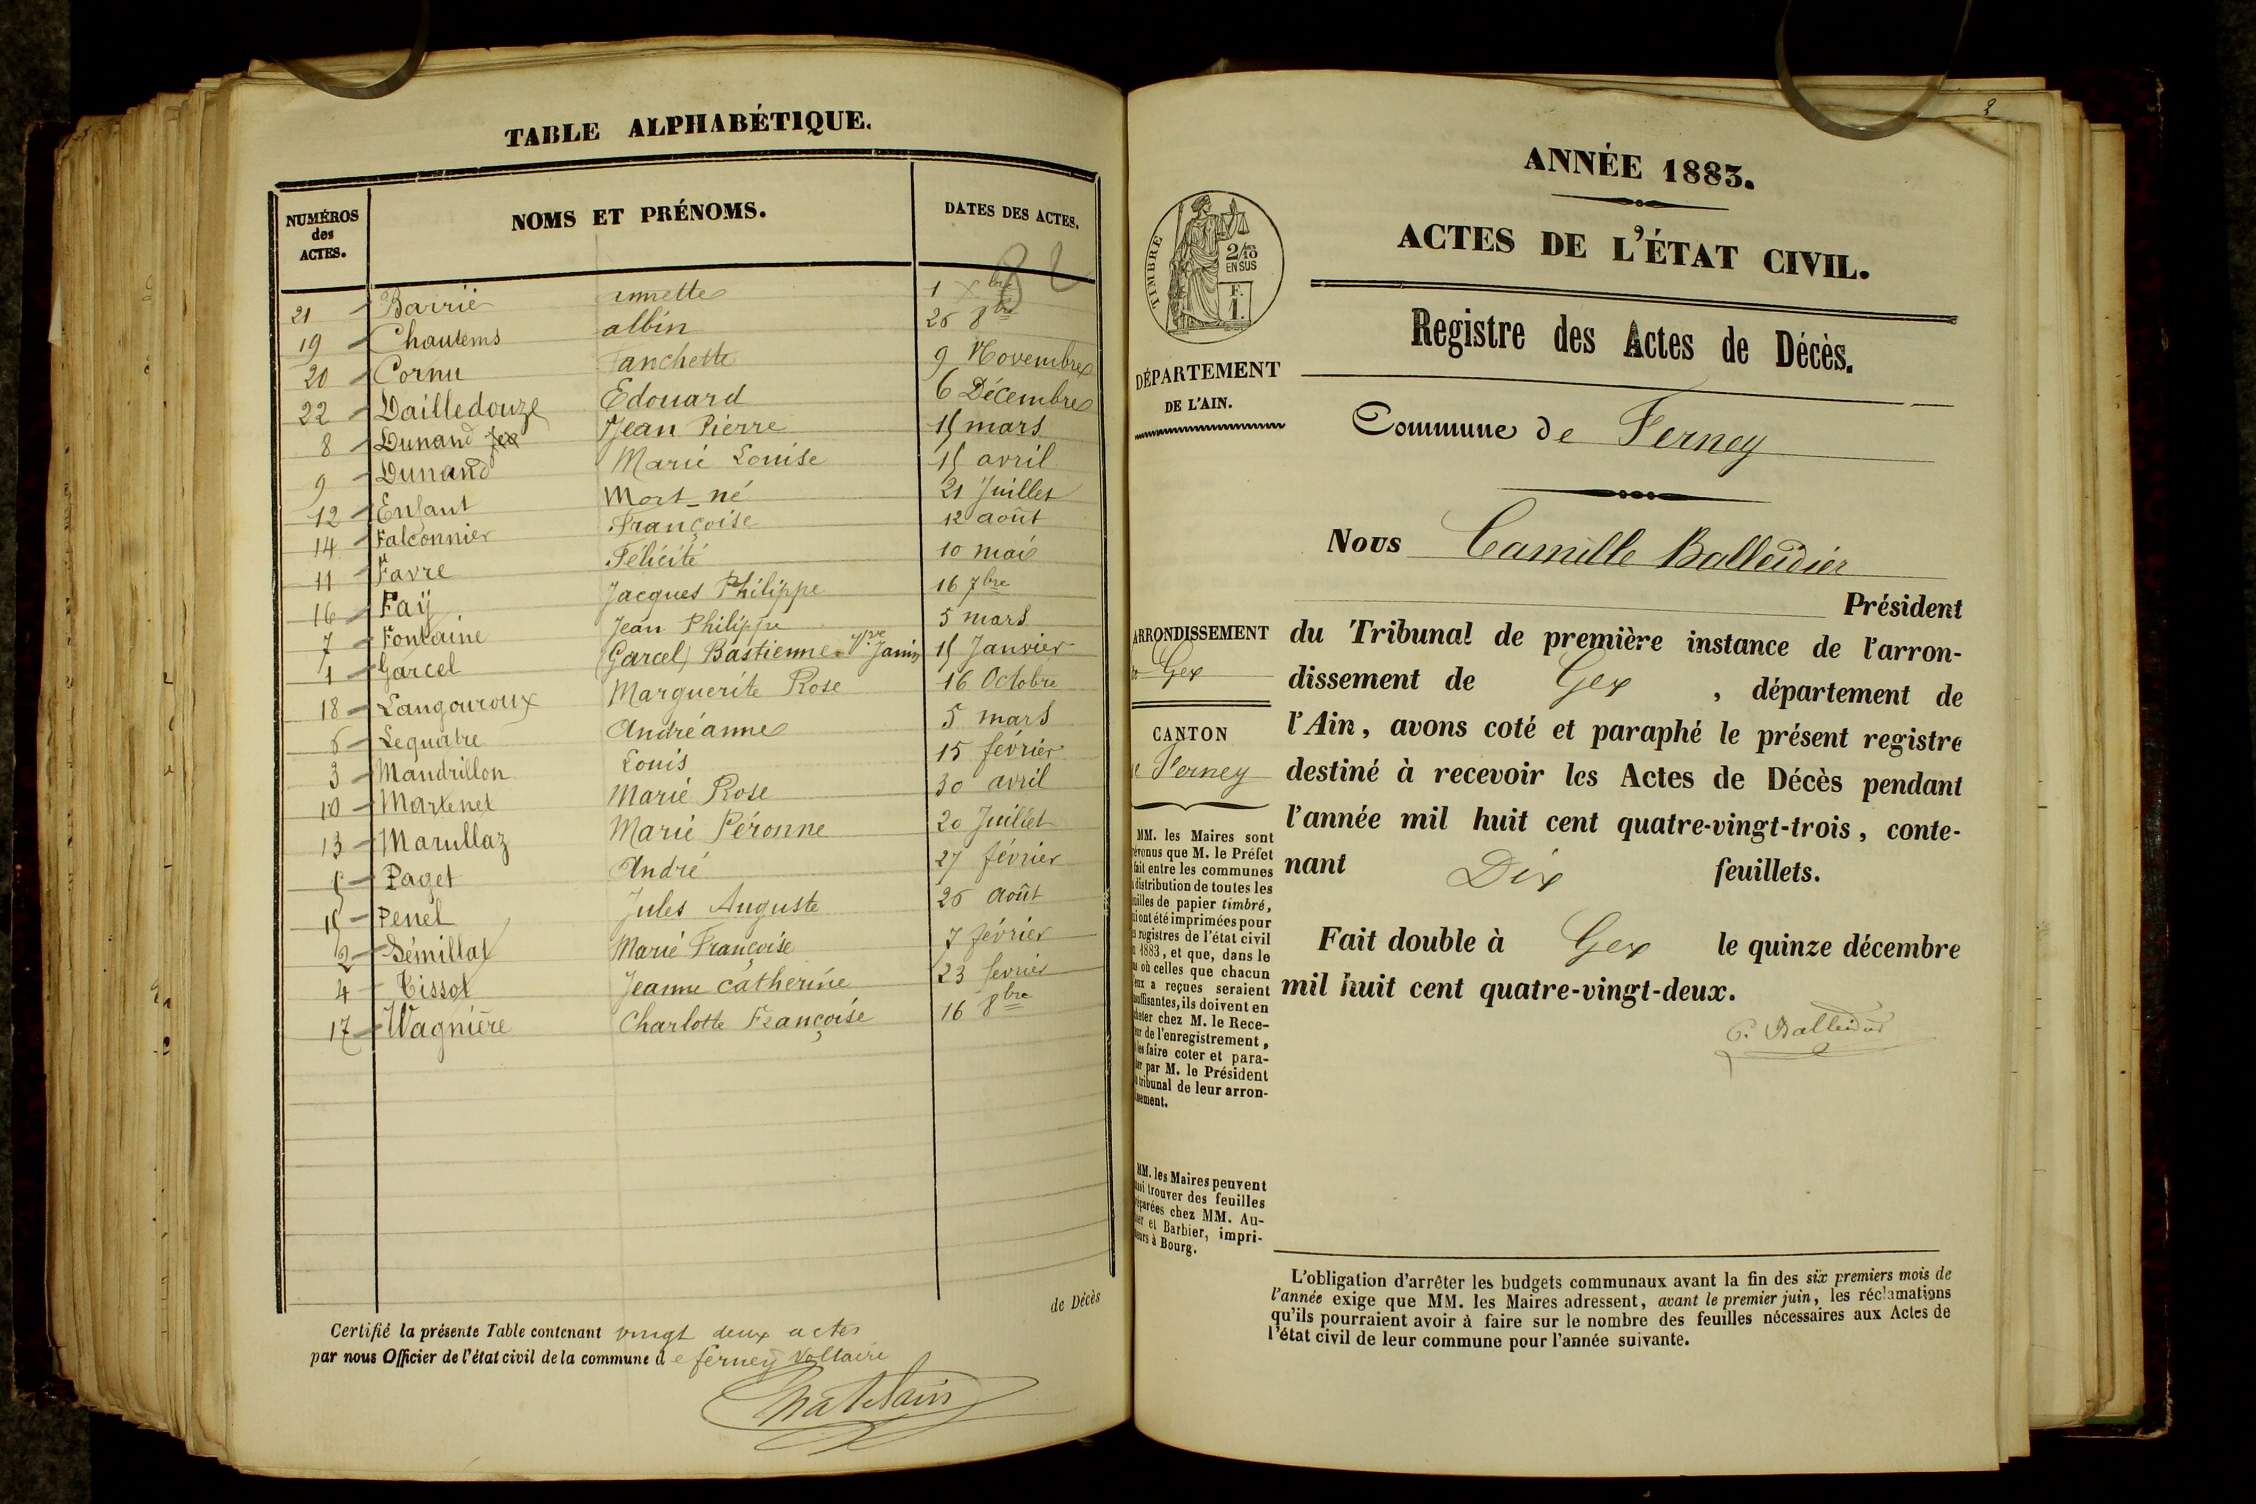 TABLE ALPHABÉTIQUE.
NUMÉROS des ACTES. NOMS ET PRÉNOMS. DATES DES ACTES.
82
21 Barrié annette 1 Xbre
19 Chautems albin 26 8bre
20 Cornu Fanchette 9 Novembre
22 Dailledouze Edouard 6 Décembre
8 Dunand Jean Pierre 15 mars
9 Dunand Marie Louise 15 avril
12 Enfant Mort-né 21 Juillet
14 Falconnier Françoise 12 août
11 Favre Félicité 10 mai
16 Faÿ Jacques Philippe 16 7bre
7 Fontaine Jean Philippe 5 mars
1 Garcel (Garcel) Bastienne Janin 15 Janvier
18 Langouroux Marguerite Rose 16 Octobre
6 Lequatre Andréanne 5 mars
3 Mandrillon Louis 15 février
10 Martenet Marie Rose 30 avril
13 Marullaz Marie Péronne 20 Juillet
5 Paget André 27 février
15 Penel Jules Auguste 26 août
2 Sémillat Marie Françoise 7 février
4 Tissot Jeanne Catherine 23 fevrier
17 Wagnière Charlotte Françoise 16 8bre
de Décès
Certifié la présente Table contenant vingt deux actes
par nous Officier de l'état civil de la commune de ferney Voltaire
ANNÉE 1883.
ACTES DE L'ÉTAT CIVIL.
TIMBRE
2/10
EN SUS
F.
1.
Registre des Actes de Décès.
DÉPARTEMENT
DE L'AIN.
Commune de Ferney
Nous Camille Balleidier
Président
ARRONDISSEMENT
Gex
CANTON
Ferney
du Tribunal de première instance de l'arron-
dissement de Gex, département de
l'Ain, avons coté et paraphé le présent registre
destiné à recevoir les Actes de Décès pendant
l'année mil huit cent quatre-vingt-trois, conte-
nant Dix feuillets.
Fait double à Gex le quinze décembre
mil huit cent quatre-vingt-deux.
C. Balleidier
MM. les Maires sont
que M. le Préfet
fait entre les communes
distribution de toutes les
de papier timbré,
ont été imprimées pour
registres de l'état civil
1883, et que, dans le
où celles que chacun
a reçues seraient
ils doivent en
chez M. le Rece-
de l'enregistrement,
les faire coter et para-
par M. le Président
tribunal de leur arron-
MM. les Maires peuvent
trouver des feuilles
chez MM. Au-
et Barbier, impri-
à Bourg.
L'obligation d'arrêter les budgets communaux avant la fin des six premiers mois de
l'année exige que MM. les Maires adressent, avant le premier juin, les réclamations
qu'ils pourraient avoir à faire sur le nombre des feuilles nécessaires aux Actes de
l'état civil de leur commune pour l'année suivante.